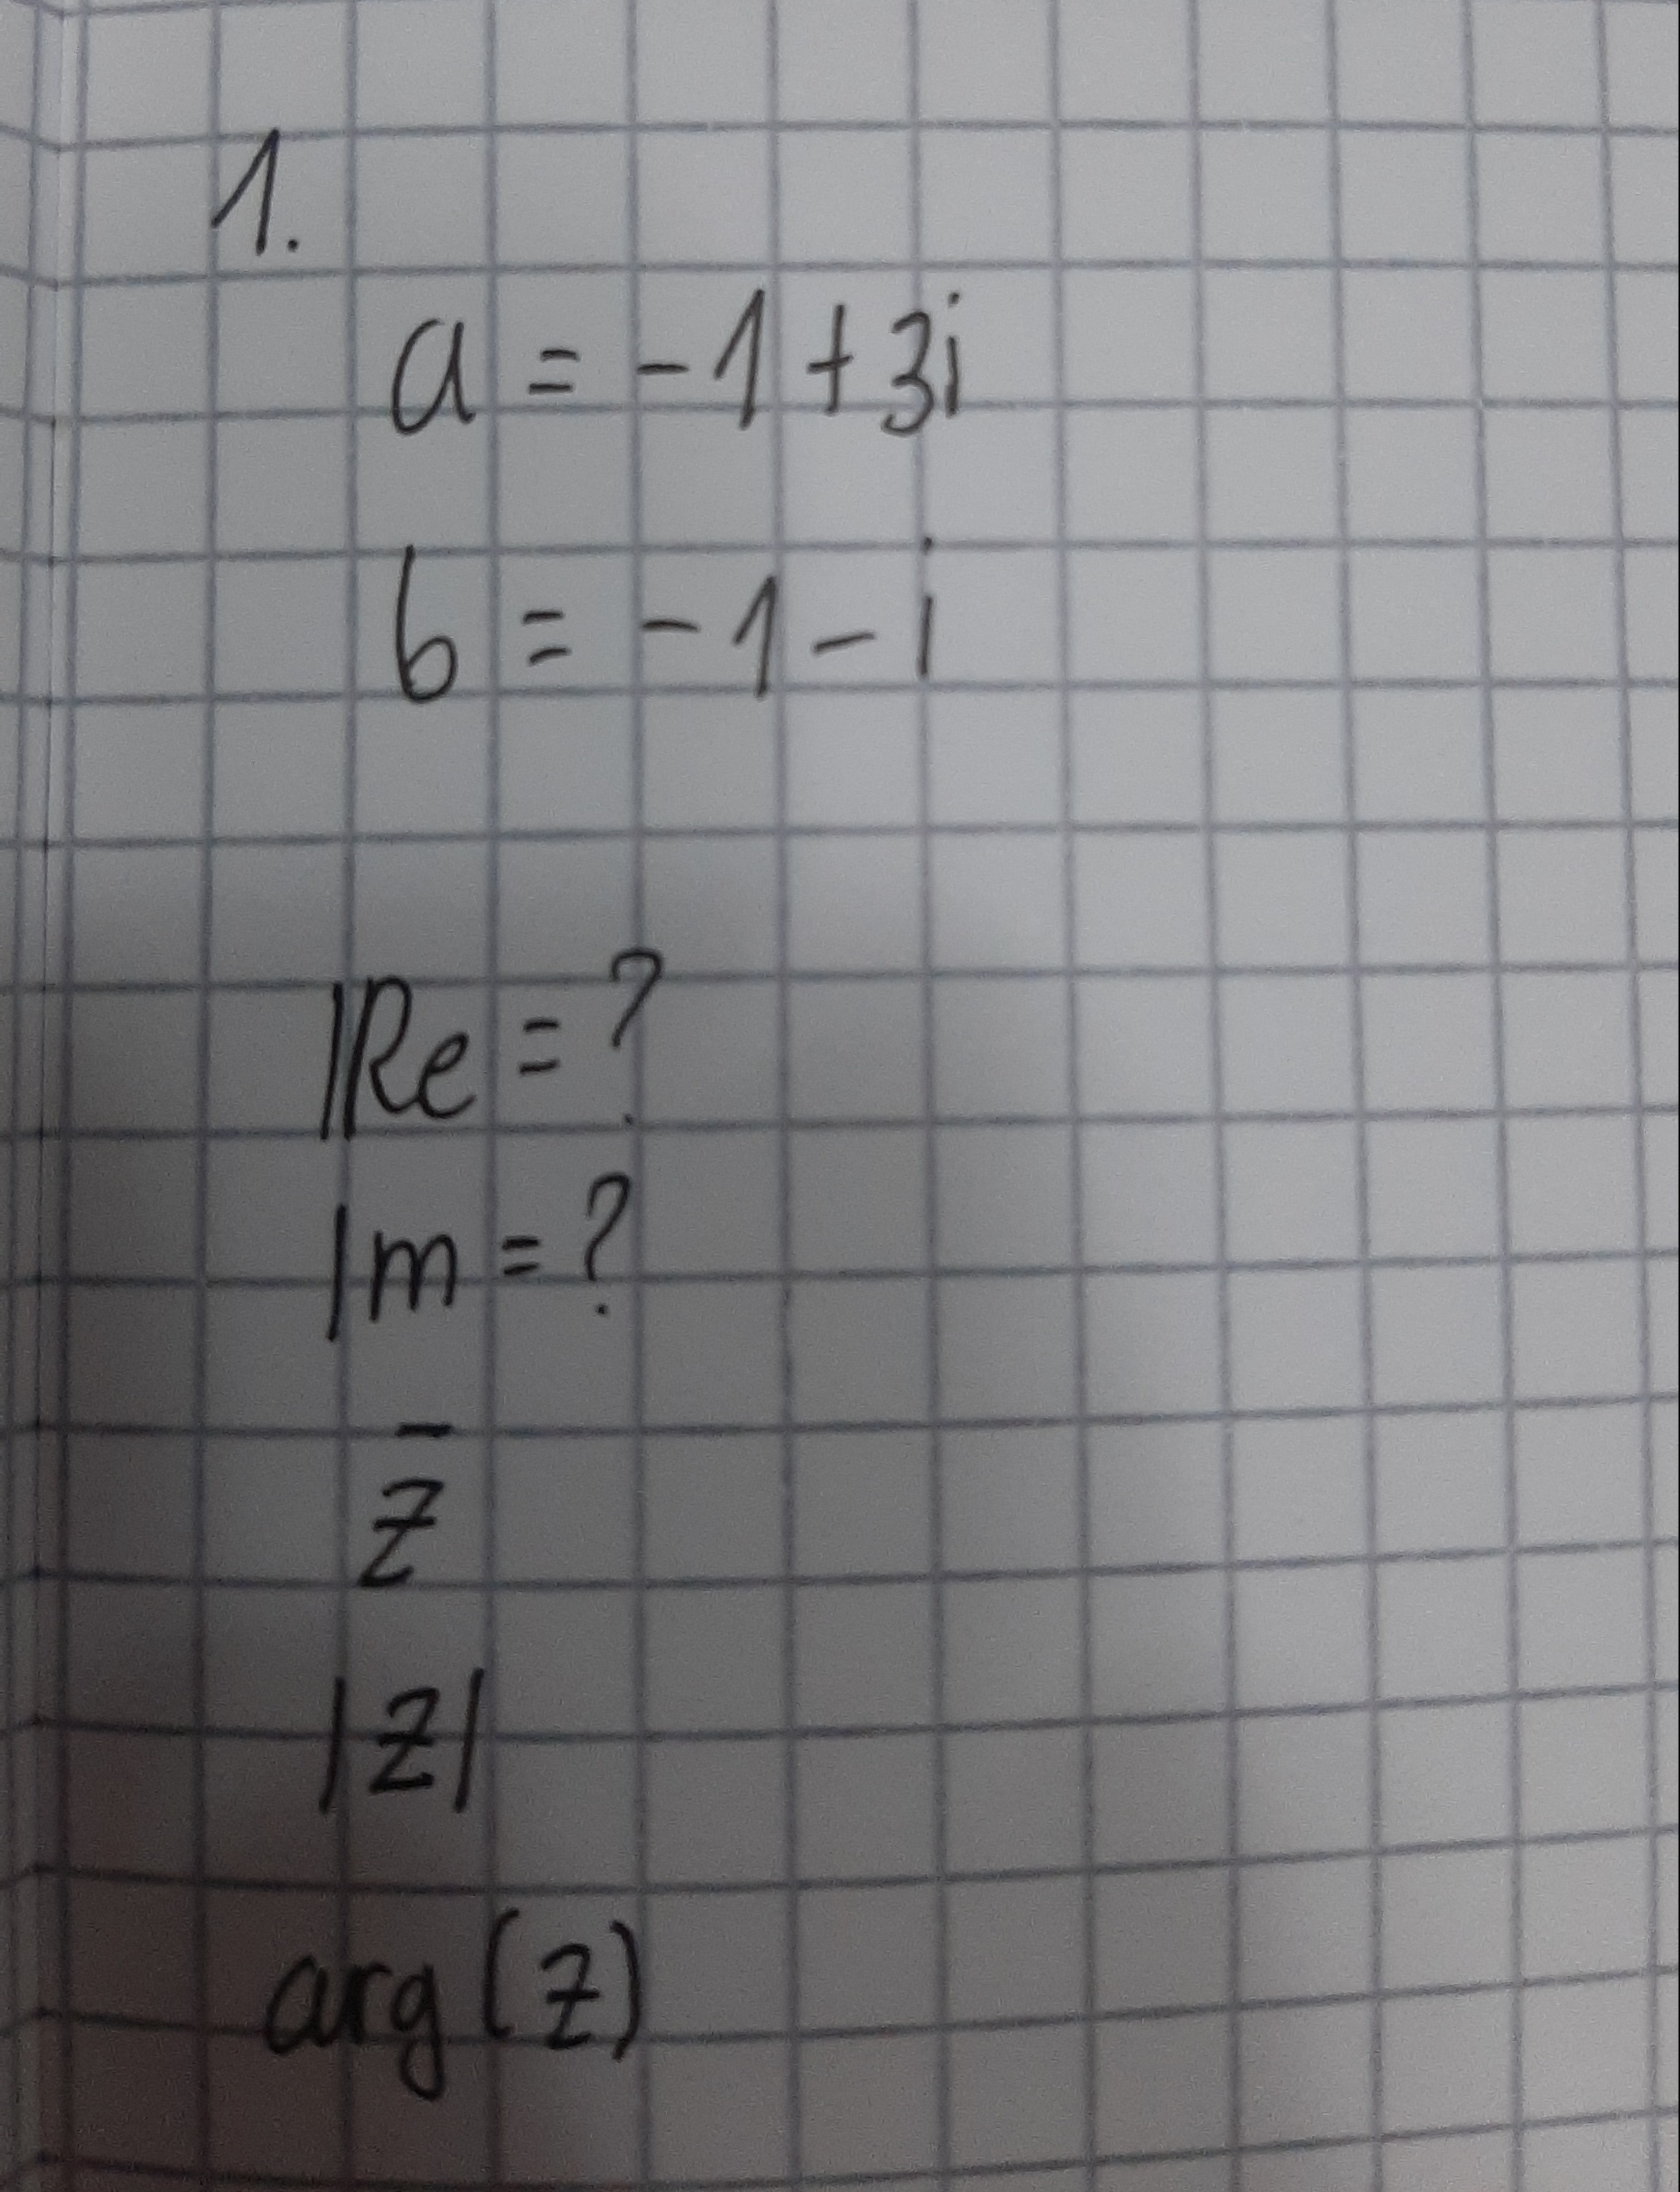 1.
a = -1+3i
b = -1-i
Re = ?
Im = ?
z̄
|z|
arg(z)